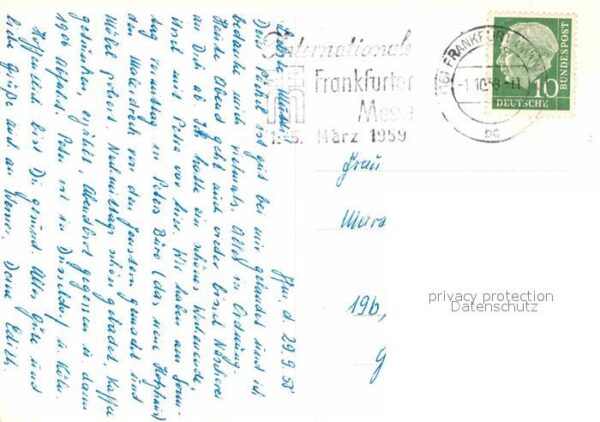 Ffm, d. 29.9.58
Dein Paket ist gut bei mir gelandet und ich
bedanke mich vielmals. Alles in Ordnung.
Heute Abend geht auch wieder bissel Näscherei
an Dich ab. Ich hatte ein schönes Wochenende,
Ursel mit Peter war hier. Wir haben am Sonn-
tag vormittag in Peters Büro (das neue
den Malerdreck von den Fenstern gemacht und
Möbel geschoben. Nachmittags schön gebadet, Kaffee
getrunken, erzählt, Abendbrot gegessen u. dann
1906 Abfahrt. Peter ist in Düsseldorf u. Köln.
Hoffentlich bist Du gesund. Alles Gute und
liebe Grüße auch an Werner, Deine Edith.
Internationale
Frankfurter
Messe
1.-5. März 1959
(16) FRANKFURT
-1.10.58-11
10
DEUTSCHE
BUNDESPOST
Frau
Mara
19b,
G
privacy protection
Datenschutz